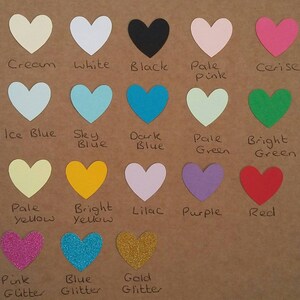 Cream White Black Pale Cerise
pink
Ice Blue Sky Dark Pale Bright
Blue Blue Green Green
Pale Bright Lilac Purple Red
Yellow Yellow
Pink Blue Gold
Glitter Glitter Glitter